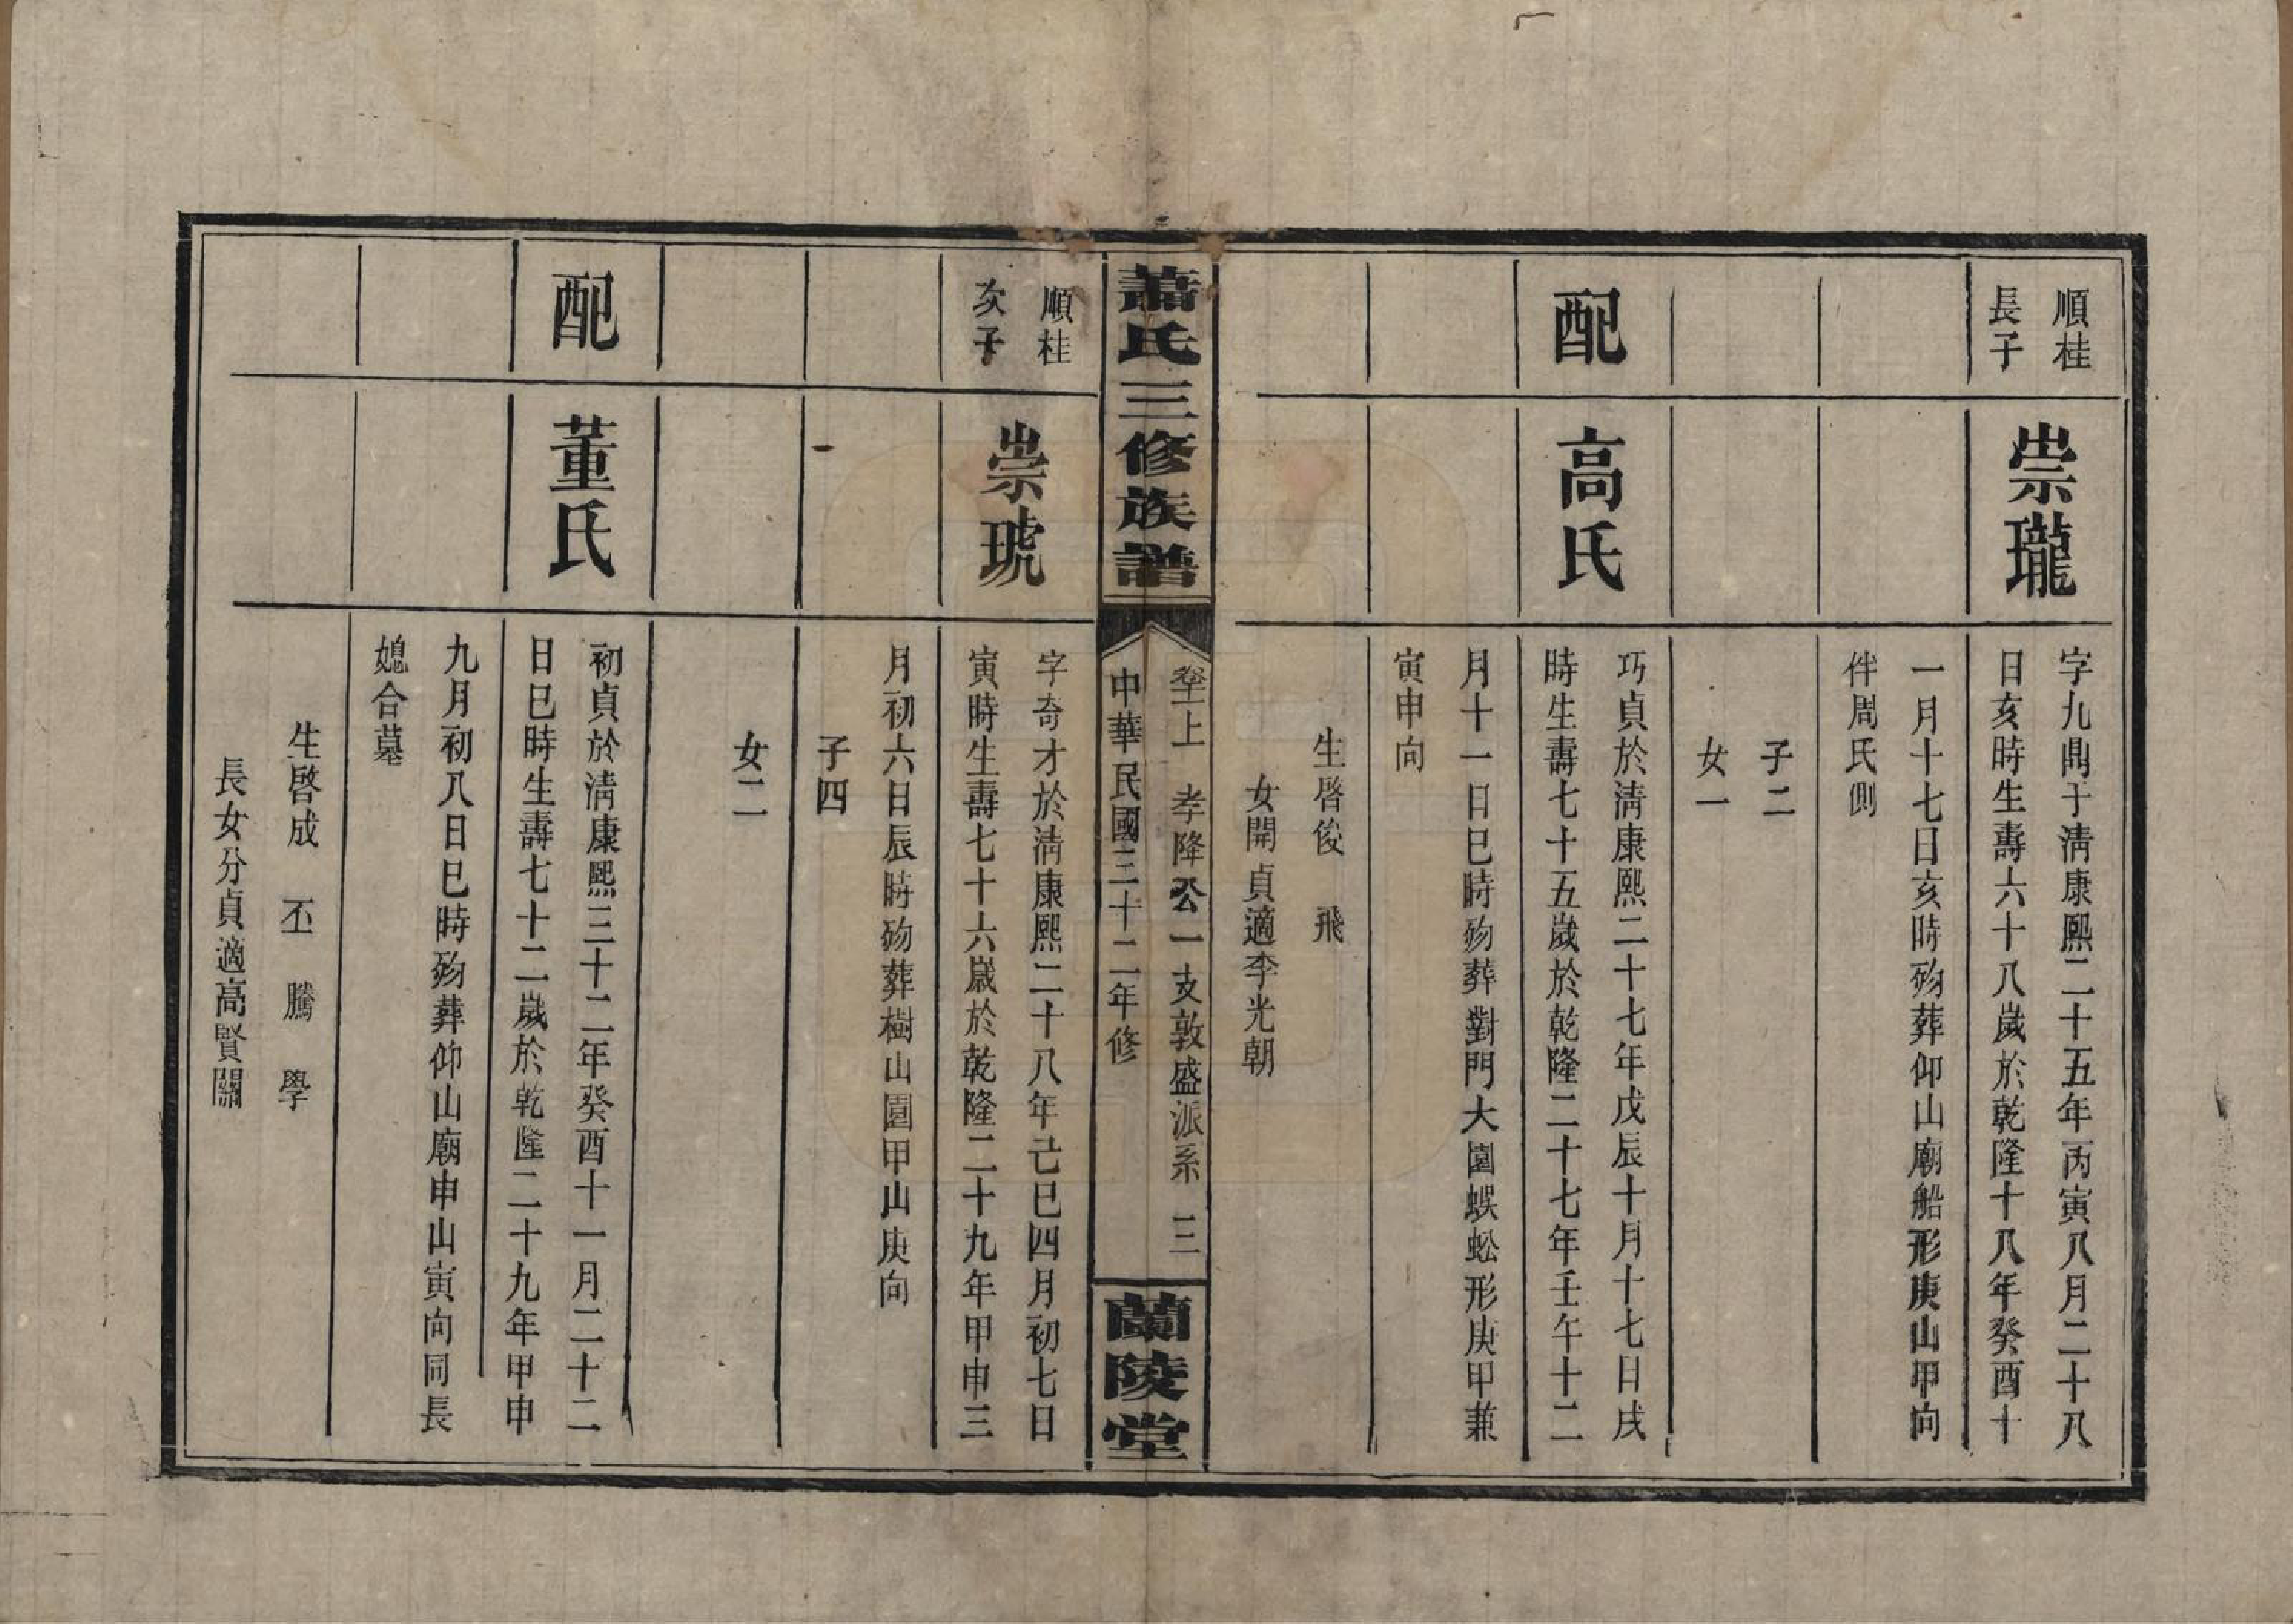 順桂
長子
崇瓏
字九鼎于淸康熙二十五年丙寅八月二十八
日亥時生壽六十八歲於乾隆十八年癸酉十
一月十七日亥時歿葬仰山廟船形庚山甲向
伴周氏側
子二
女一
配
高氏
巧貞於淸康熙二十七年戊辰十月十七日戌
時生壽七十五歲於乾隆二十七年壬午十二
月十一日巳時歿葬對門大園蜈蚣形庚甲兼
寅申向
生啓俊 飛
女開貞適李光朝
蕭氏三修族譜
卷上 孝降公一支敦盛派系 三
中華民國三十二年修
蘭陵堂
順桂
次子
崇琥
字奇才於淸康熙二十八年己巳四月初七日
寅時生壽七十六歲於乾隆二十九年甲申三
月初六日辰時歿葬樹山園甲山庚向
子四
女二
配
董氏
初貞於淸康熙三十二年癸酉十一月二十二
日巳時生壽七十二歲於乾隆二十九年甲申
九月初八日巳時歿葬仰山廟申山寅向同長
媳合墓
生啓成 丕 騰 學
長女分貞適高賢關